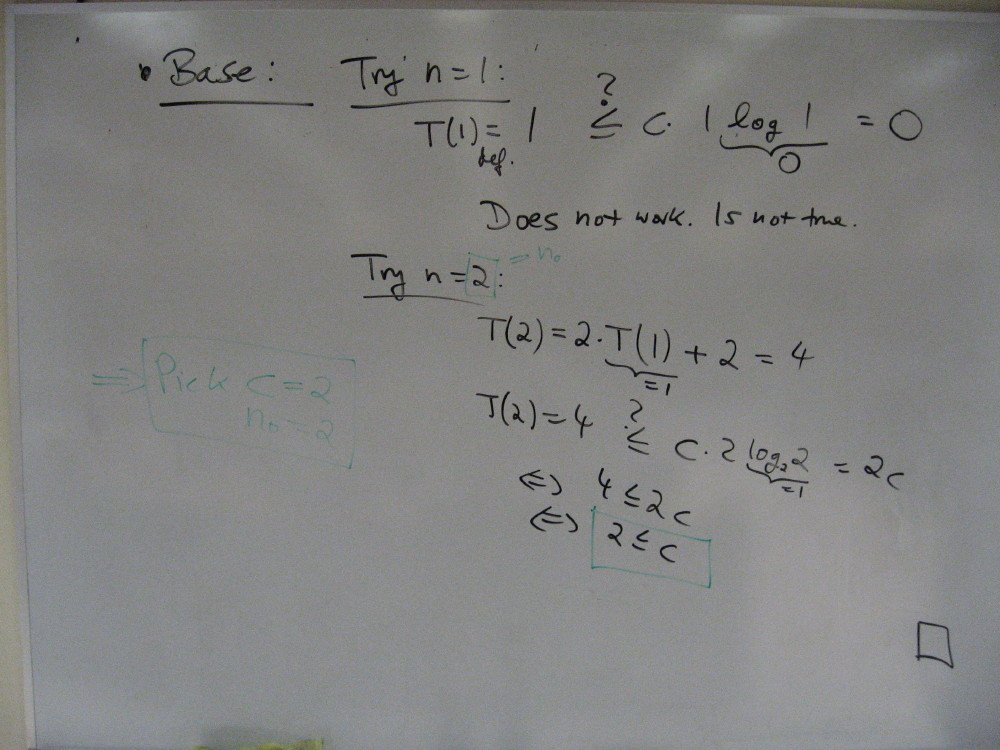 • Base: Try n=1:
T(1) = 1 ≤? c. 1 log 1 = 0
def. 0
Does not work. Is not true.
Try n=2: = n₀
T(2) = 2·T(1) + 2 = 4
=1
T(2) = 4 ≤? c. 2 log₂2 = 2c
=1
⇔ 4 ≤ 2c
⇔ 2 ≤ c
⇒ Pick c=2
n₀=2
□